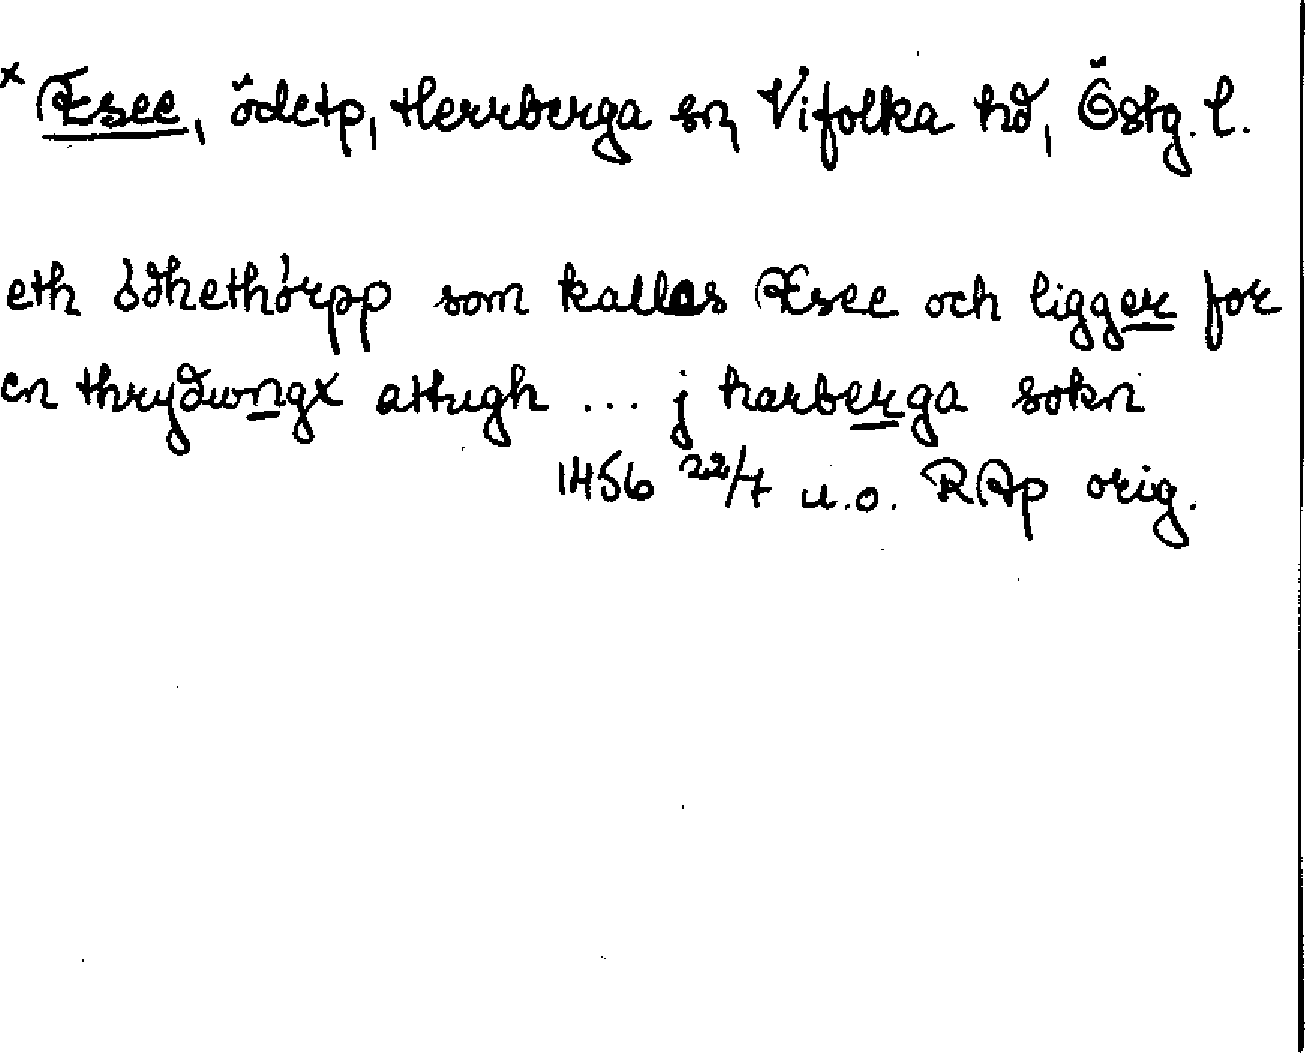 x Æsee, ödetp, Herrberga sn, Vifolka hd, Östg. l.
eth ödhethörpp som kallas Æsee och ligger for
en thrydwngx attugh ... j harberga sokn
1456 22/7 u.o. RAp orig.